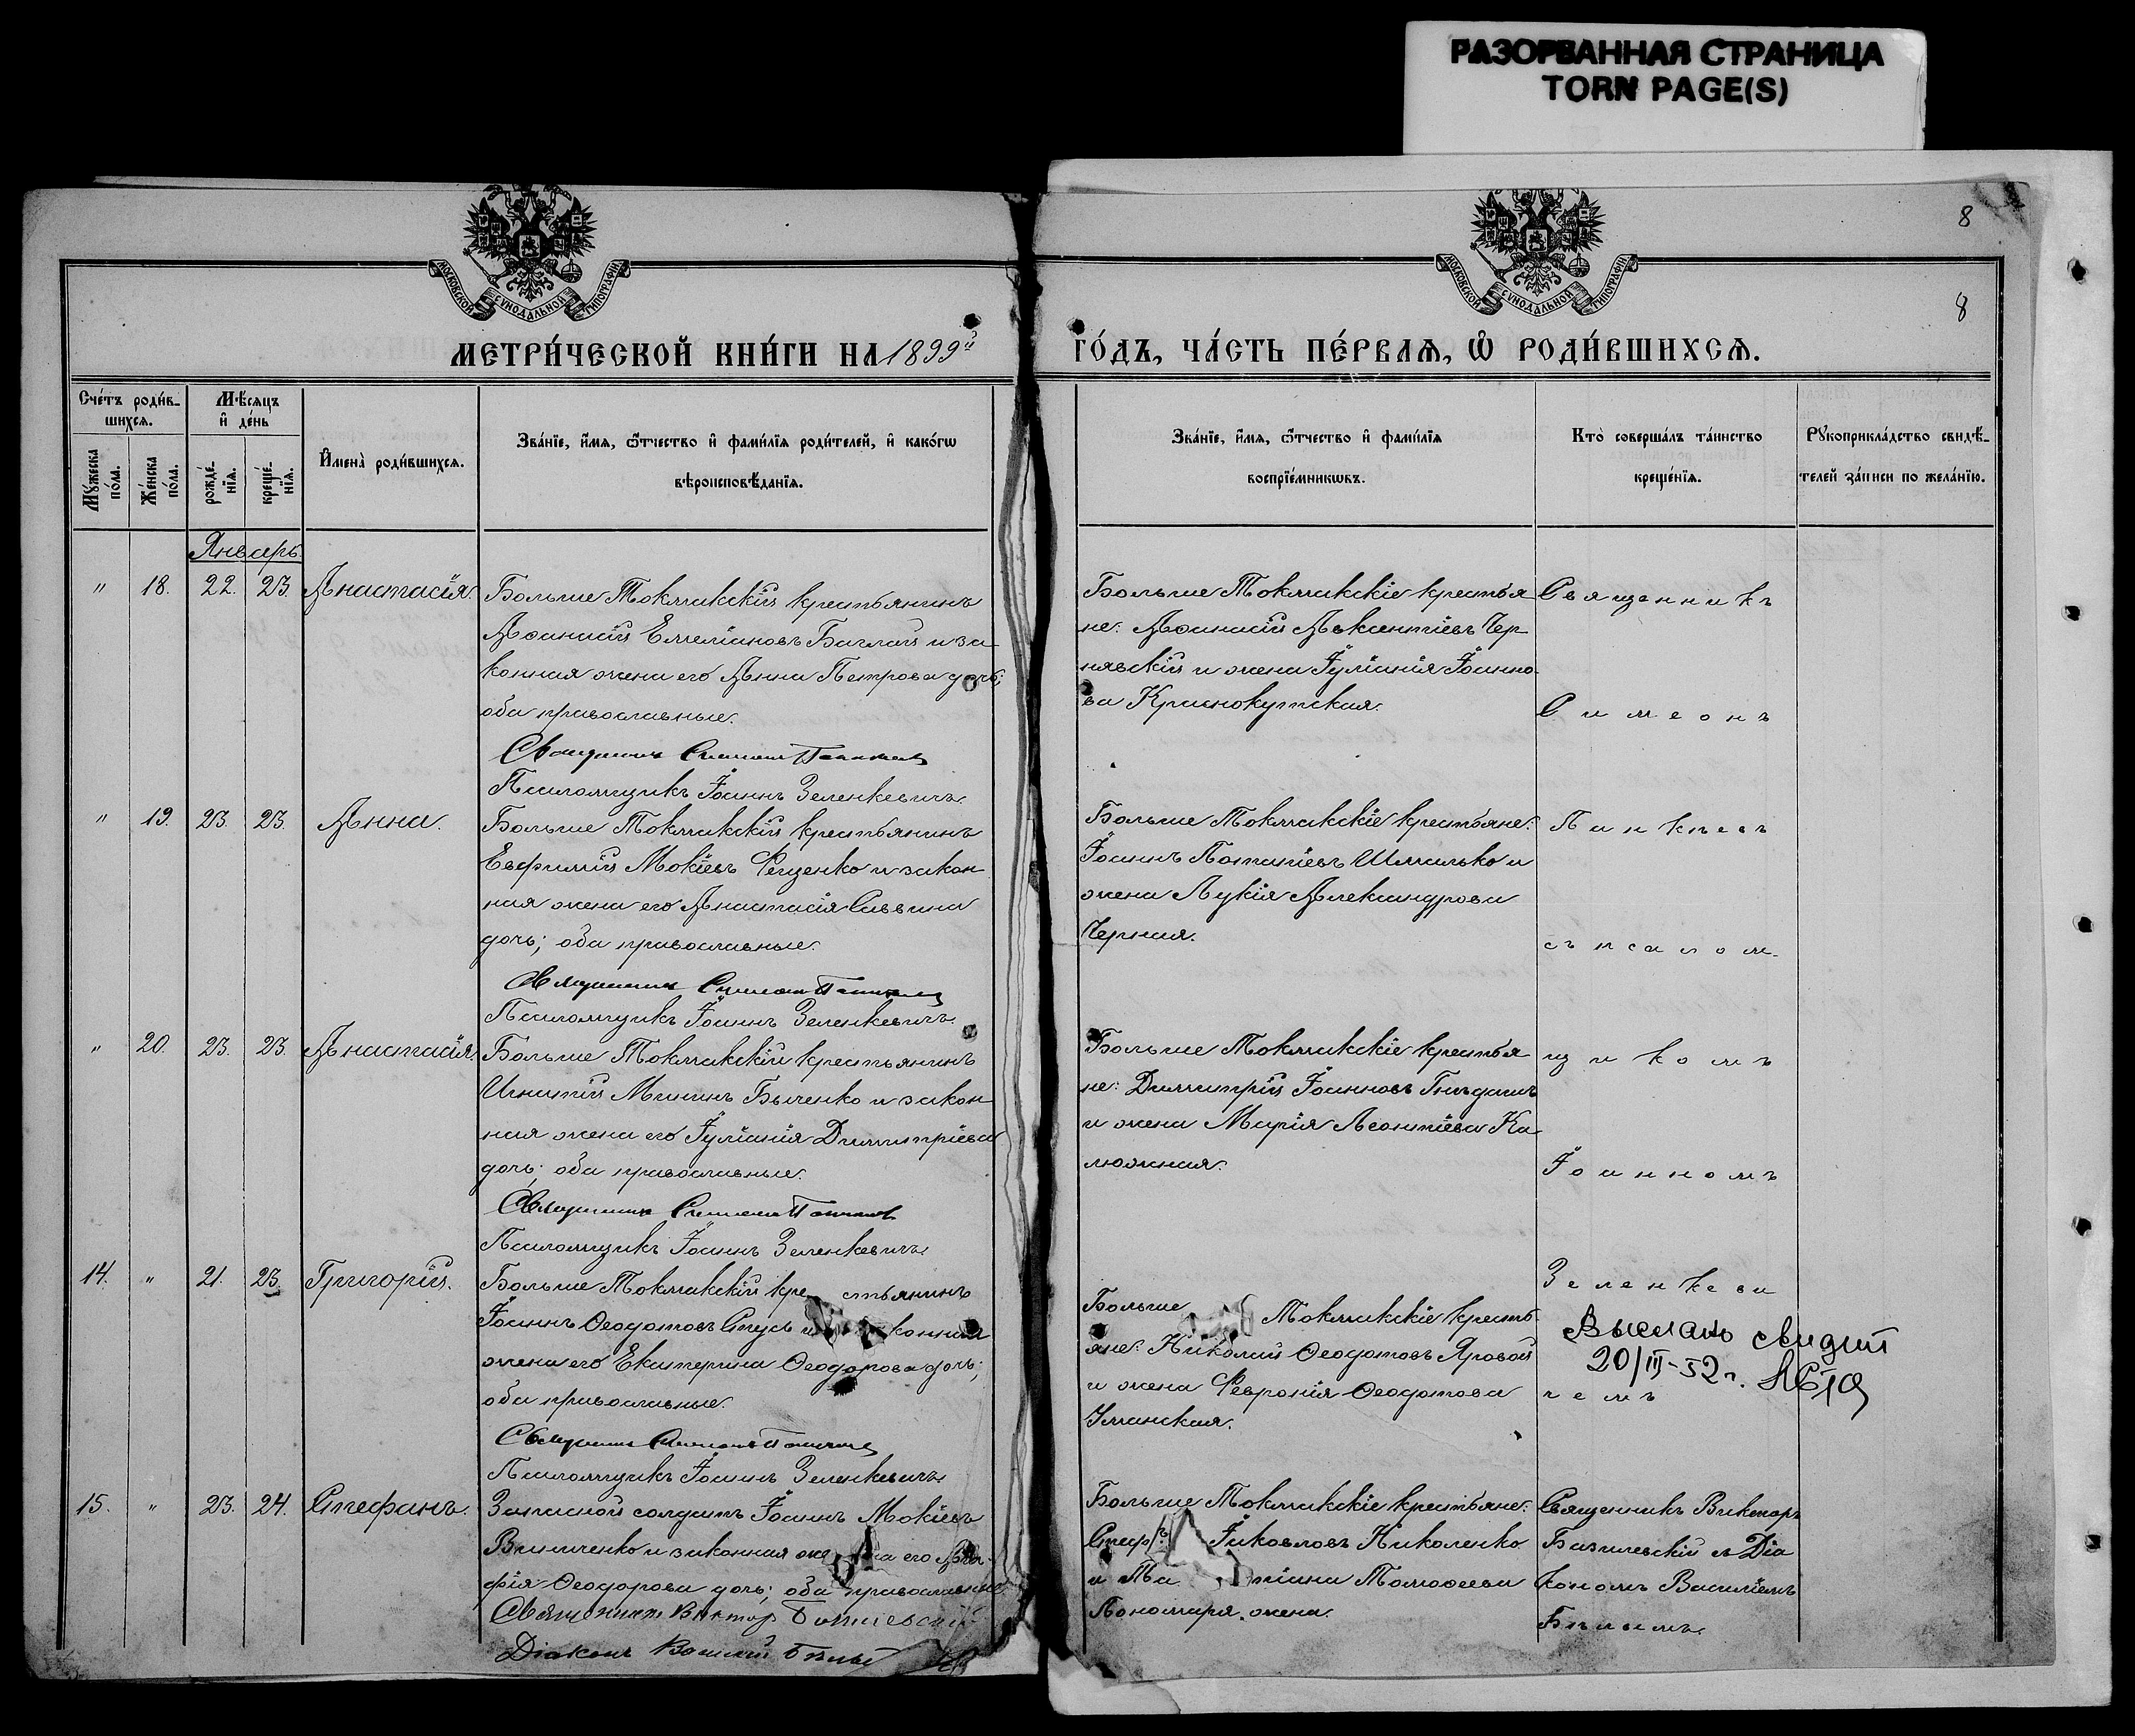 РАЗОРВАННАЯ СТРАНИЦА
TORN PAGE(S)
8
8
МОСКОВСКОЙ СѴНОДАЛЬНОЙ ТИПОГРАФІИ
МОСКОВСКОЙ СѴНОДАЛЬНОЙ ТИПОГРАФІИ
МЕТРИ́ЧЕСКОЙ КНИ́ГИ НА 1899й ГО́ДЪ, ЧА́СТЬ ПЕ́РВАѦ, Ѡ҆ РОДИ́ВШИХСѦ.
Сче́тъ роди́в-
шихсѧ.
Му́жеска по́ла.
Же́нска по́ла.
Мѣ́сѧцъ
и҆ де́нь
рожде́-
нїѧ.
креще́-
нїѧ.
И҆мена̀ роди́вшихсѧ.
Зва́нїе, и҆́мѧ, ѻ҆́тчество и҆ фами́лїѧ роди́телей, и҆ како́гѡ
вѣроисповѣ́данїѧ.
Зва́нїе, и҆́мѧ, ѻ҆́тчество и҆ фами́лїѧ
воспрїе́мникѡвъ.
Кто̀ соверша́лъ та́инство
креще́нїѧ.
Рꙋкоприкла́дство свидѣ́-
телей за́писи по жела́нїю.
Январь.
" 18. 22. 23. Анастасія.
Больше Токмакскій крестьянинъ
Аѳанасій Емеліановъ Баглай и за
конная жена его Анна Петрова дочь;
оба православные.
Священникъ Симеонъ Панкѣевъ
Псаломщикъ Іоаннъ Зеленкевичъ.
Больше Токмакскіе крестья
не: Аѳанасій Авксентіевъ Чер
нявскій и жена Іуліанія Іоанно
ва Краснокутская.
Священникъ
Симеонъ
" 19. 23. 23. Анна.
Больше Токмакскій крестьянинъ
Евфимій Мокіевъ Фещенко и закон
ная жена его Анастасія Саввина
дочь; оба православные.
Священникъ Симеонъ Панкѣевъ
Псаломщикъ Іоаннъ Зеленкевичъ.
Больше Токмакскіе крестьяне:
Іоаннъ Потапіевъ Шмалько и
жена Лукія Александрова
Черная.
Панкѣевъ
съ псалом-
" 20. 23. 23. Анастасія.
Больше Токмакскій крестьянинъ
Игнатій Мининъ Быченко и закон
ная жена его Іуліанія Димитріева
дочь; оба православные.
Священникъ Симеонъ Панкѣевъ
Псаломщикъ Іоаннъ Зеленкевичъ.
Больше Токмакскіе крестья
не: Димитрій Іоанновъ Гнѣдашъ
и жена Марія Леонтіева Ка
люжная.
щикомъ
Іоанномъ
14. " 21. 23. Григорій.
Больше Токмакскій крестьянинъ
Іоаннъ Ѳеодотовъ Стусь и конная
жена его Екатерина Ѳеодорова дочь;
оба православные.
Священникъ Симеонъ Панкѣевъ
Псаломщикъ Іоаннъ Зеленкевичъ.
Больше Токмакскіе кресть
яне: Николай Ѳеодотовъ Яровой
и жена Февронія Ѳеодотова
Уманская.
Зеленкеви
Выслано свидет
20/III-52 г.
чемъ
15. " 23. 24. Стефанъ.
Запасной солдатъ Іоаннъ Мокіевъ
Винниченко и законная жена его Ага-
фія Ѳеодорова дочь; оба православные
Священникъ Викторъ Базилевскій
Діаконъ Василій Бѣлый
Больше Токмакскіе крестьяне:
Стеф Іаковлевъ Николенко
и Та тіана Тимоѳеева
Пономаря жена.
Священникъ Викторъ
Базилевскій съ Діа
кономъ Василіемъ
Бѣлымъ.